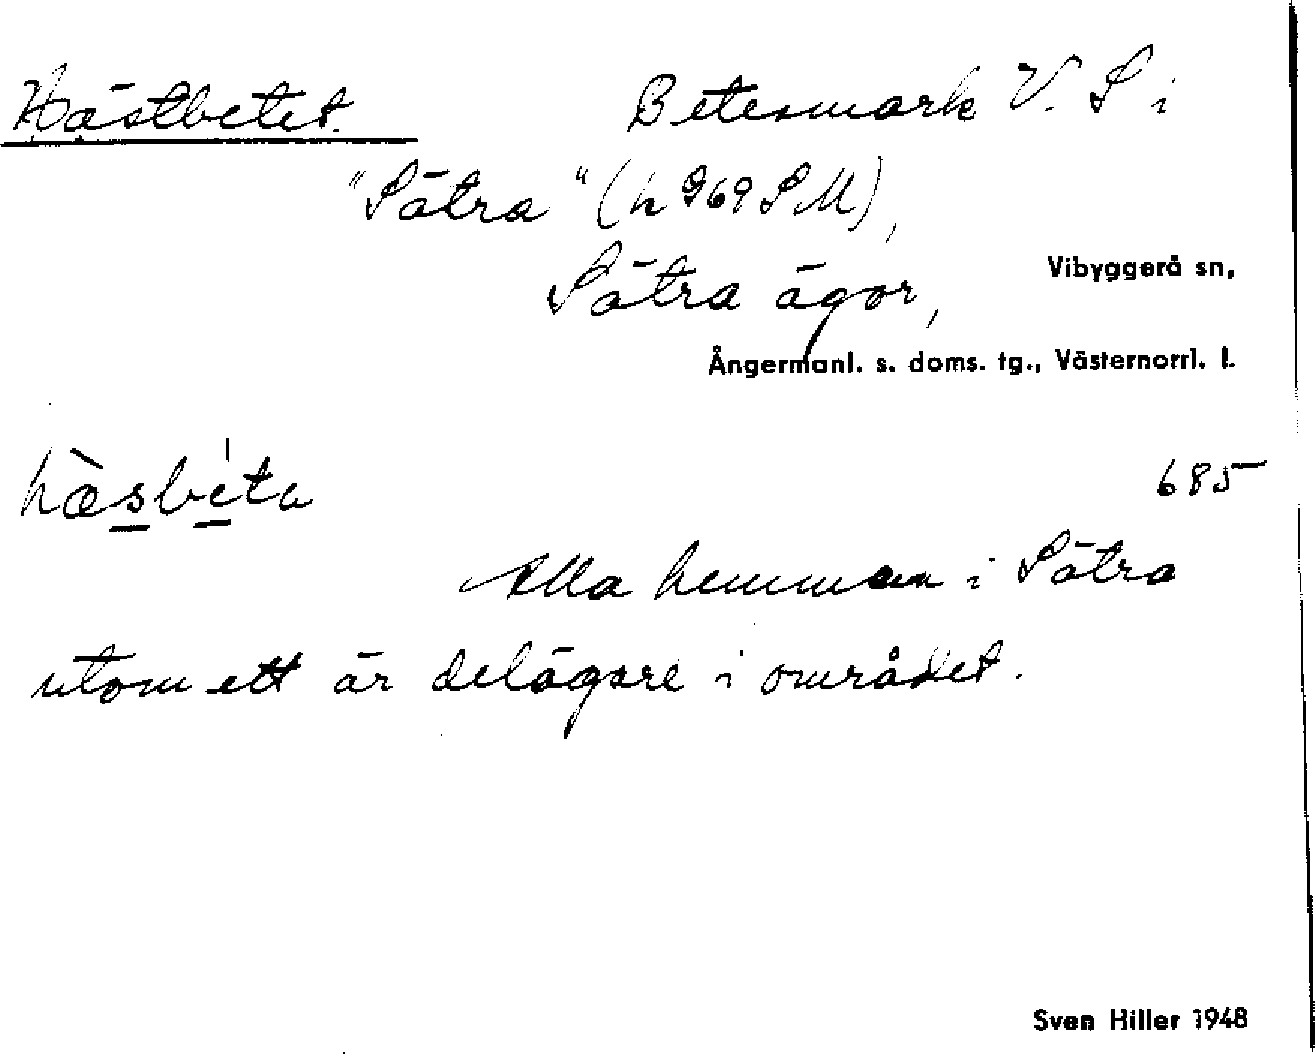 Hästbetet. Betesmark V. S i
"Sätra" (h 969 S M),
Sätra ägor, Vibyggerå sn,
Ångermanl. s. doms. tg., Västernorrl. l.
hæ̀sbéta 685
Alla hemman i Sätra
utom ett är delägare i området.
Sven Hiller 1948